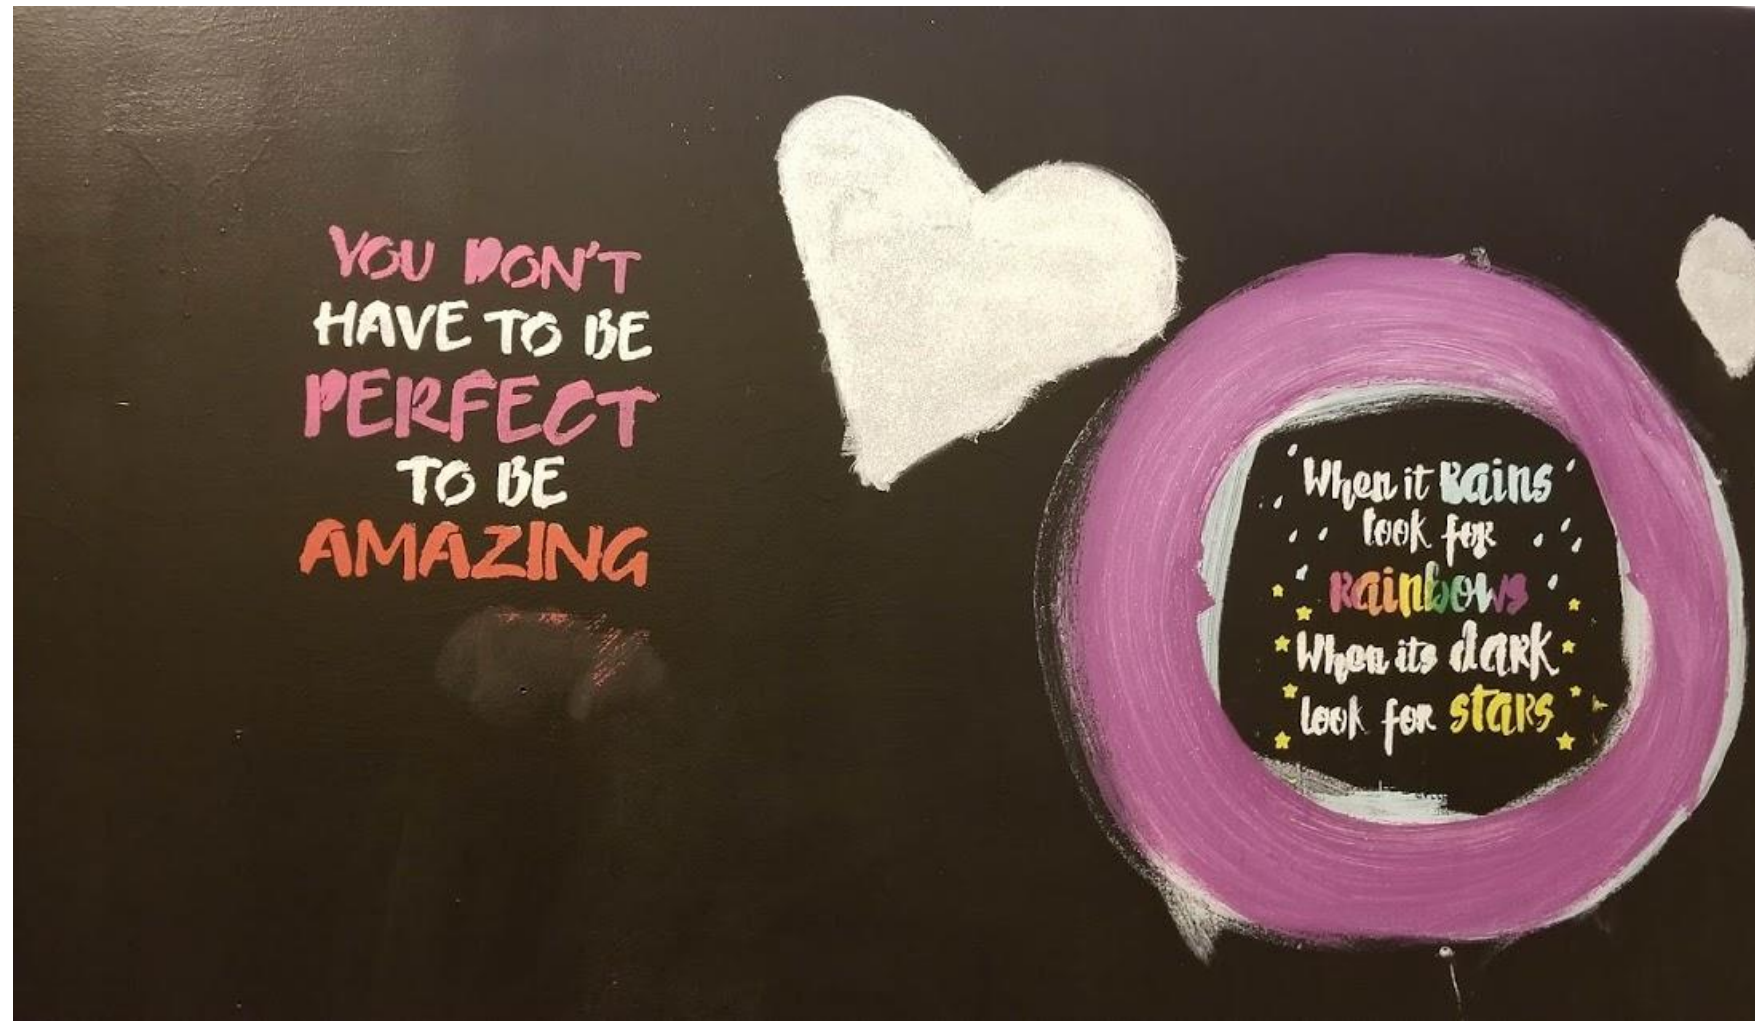 YOU DON'T
HAVE TO BE
PERFECT
TO BE
AMAZING
When it Rains
look for
Rainbows
When its dark
look for stars